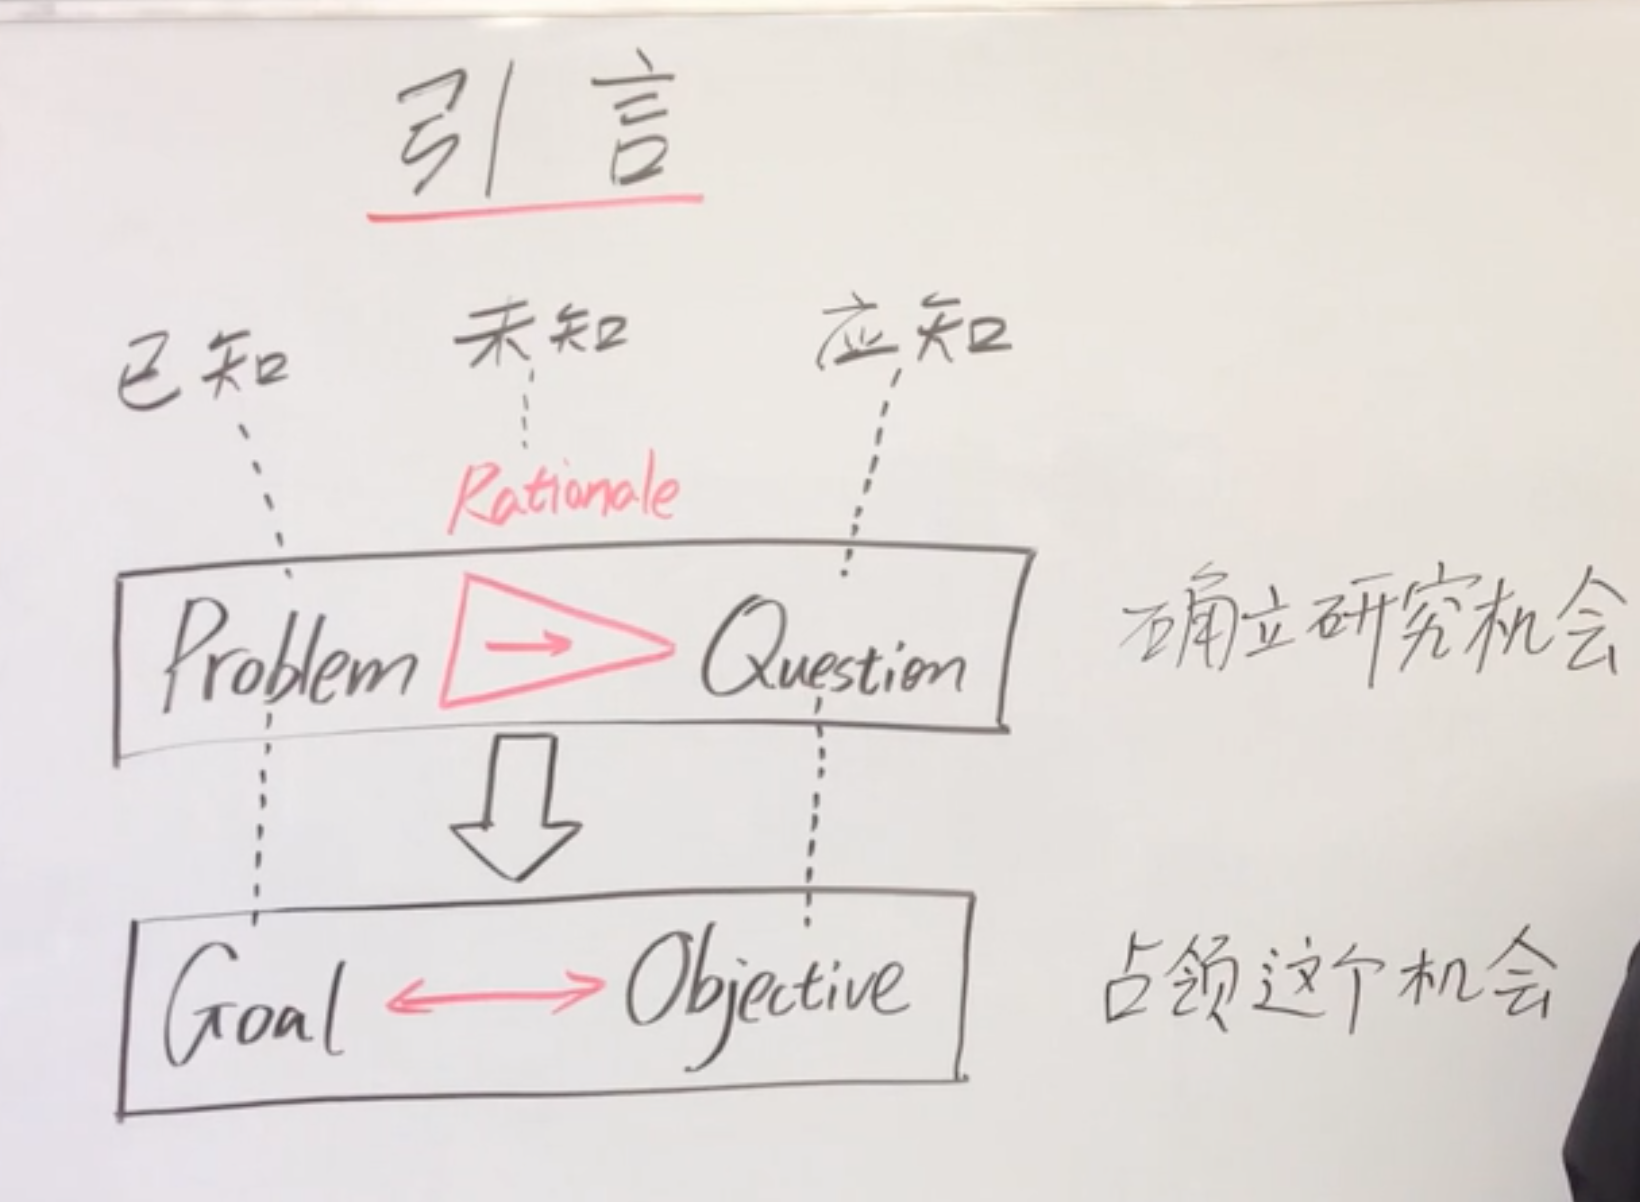 引言
已知 未知 应知
Rationale
Problem Question 确立研究机会
Goal Objective 占领这个机会